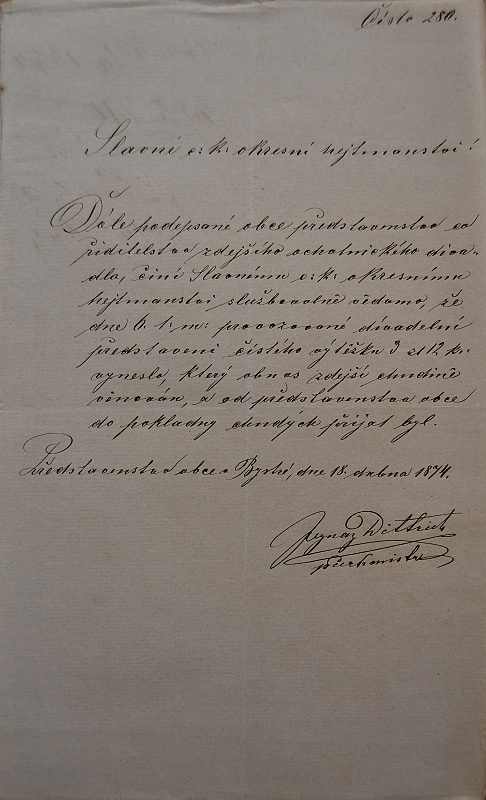 Číslo 280.
Slavné c: k: okresní hejtmanství!
Dole podepsané obce představenstvo co
řiditelstvo zdejšího ochotnického diva-
dla, činí Slavnému c: k: okresnímu
hejtmanství služebovolně vědomo, že
dne 6. t: m: provozované divadelní
představení čistého výtěžku 3 zl 12 kr.
vyneslo, který obnos zdejší chudině
věnován, a od představenstva obce
do pokladny chudých přijat byl.
Představenstvo obce Bystré, dne 18. dubna 1874.
Ignaz Dittrich
purkmistr